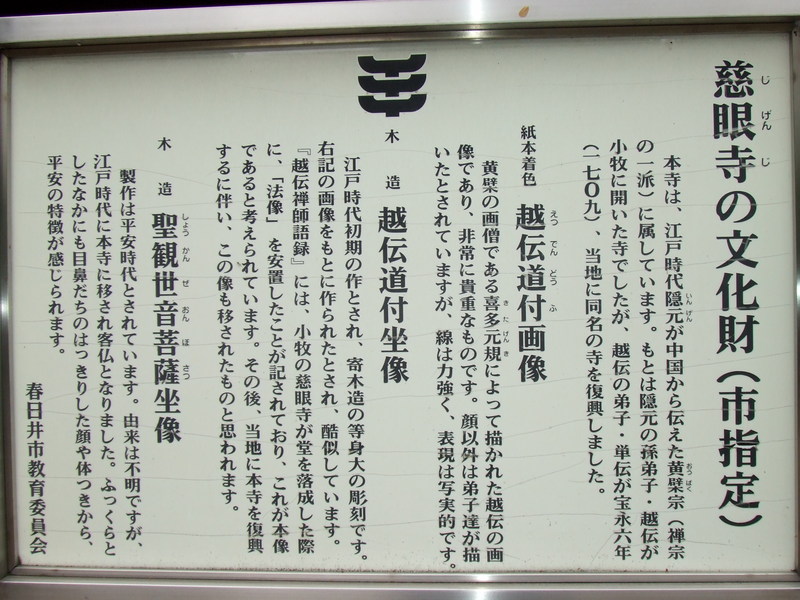 慈眼寺の文化財（市指定）
じ げん じ
本寺は、江戸時代隠元が中国から伝えた黄檗宗（禅宗
いんげん
おうばく
の一派）に属しています。もとは隠元の孫弟子・越伝が
小牧に開いた寺でしたが、越伝の弟子・単伝が宝永六年
（一七〇九）、当地に同名の寺を復興しました。
紙本着色 越伝道付画像
えつ でん どう ふ
黄檗の画僧である喜多元規によって描かれた越伝の画
き た げん き
像であり、非常に貴重なものです。顔以外は弟子達が描
いたとされていますが、線は力強く、表現は写実的です。
木造 越伝道付坐像
江戸時代初期の作とされ、寄木造の等身大の彫刻です。
右記の画像をもとに作られたとされ、酷似しています。
『越伝禅師語録』には、小牧の慈眼寺が堂を落成した際
に、「法像」を安置したことが記されており、これが本像
であると考えられています。その後、当地に本寺を復興
するに伴い、この像も移されたものと思われます。
木造 聖観世音菩薩坐像
しょう かん ぜ おん ぼ さつ
製作は平安時代とされています。由来は不明ですが、
江戸時代に本寺に移され客仏となりました。ふっくらと
したなかにも目鼻だちのはっきりした顔や体つきから、
平安の特徴が感じられます。
春日井市教育委員会